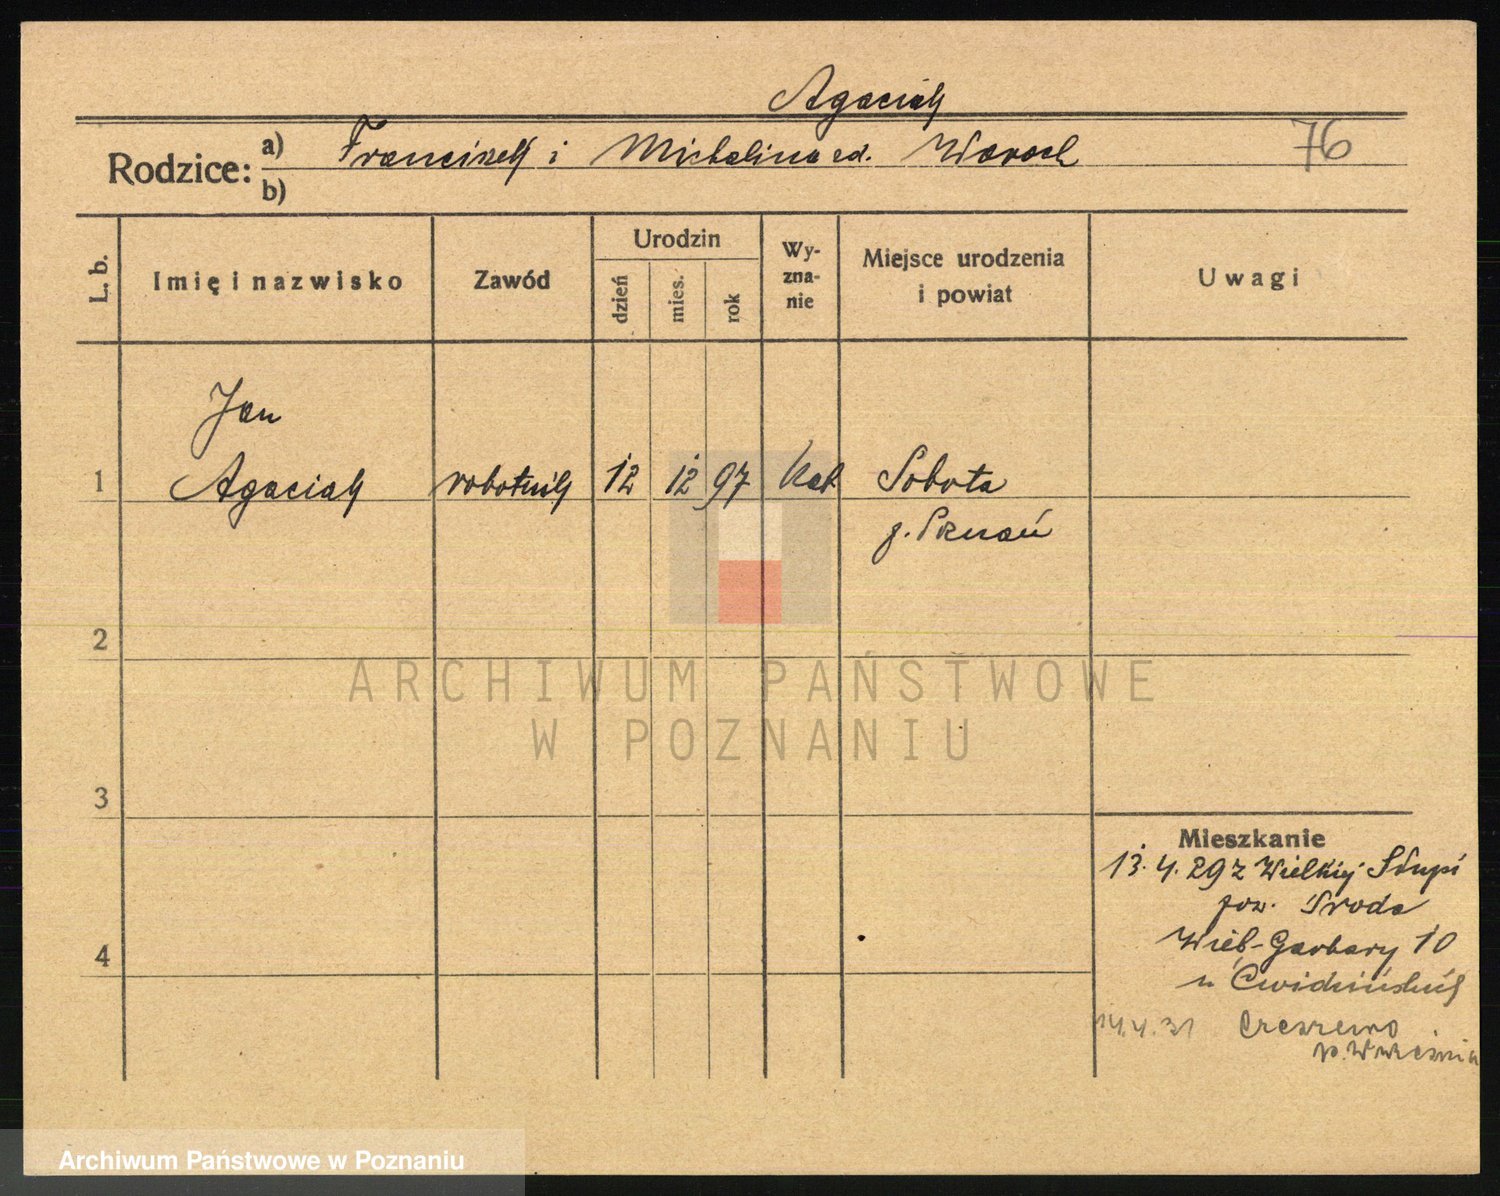 Agaciak
Rodzice: a) Franciszek i Michalina zd. Waroch 76
b)
L. b.
Imię i nazwisko
Zawód
Urodzin
dzień
mies.
rok
Wy-
zna-
nie
Miejsce urodzenia
i powiat
Uwagi
Jan
1 Agaciak robotnik 12 12 97 Kat Sobota
p. Poznań
2
3
4
Mieszkanie
13.4.29 z Wielkiej Słupi
pow. Środa
Garbary 10
u
14.4.31
p. Września
ARCHIWUM PAŃSTWOWE
W POZNANIU
Archiwum Państwowe w Poznaniu